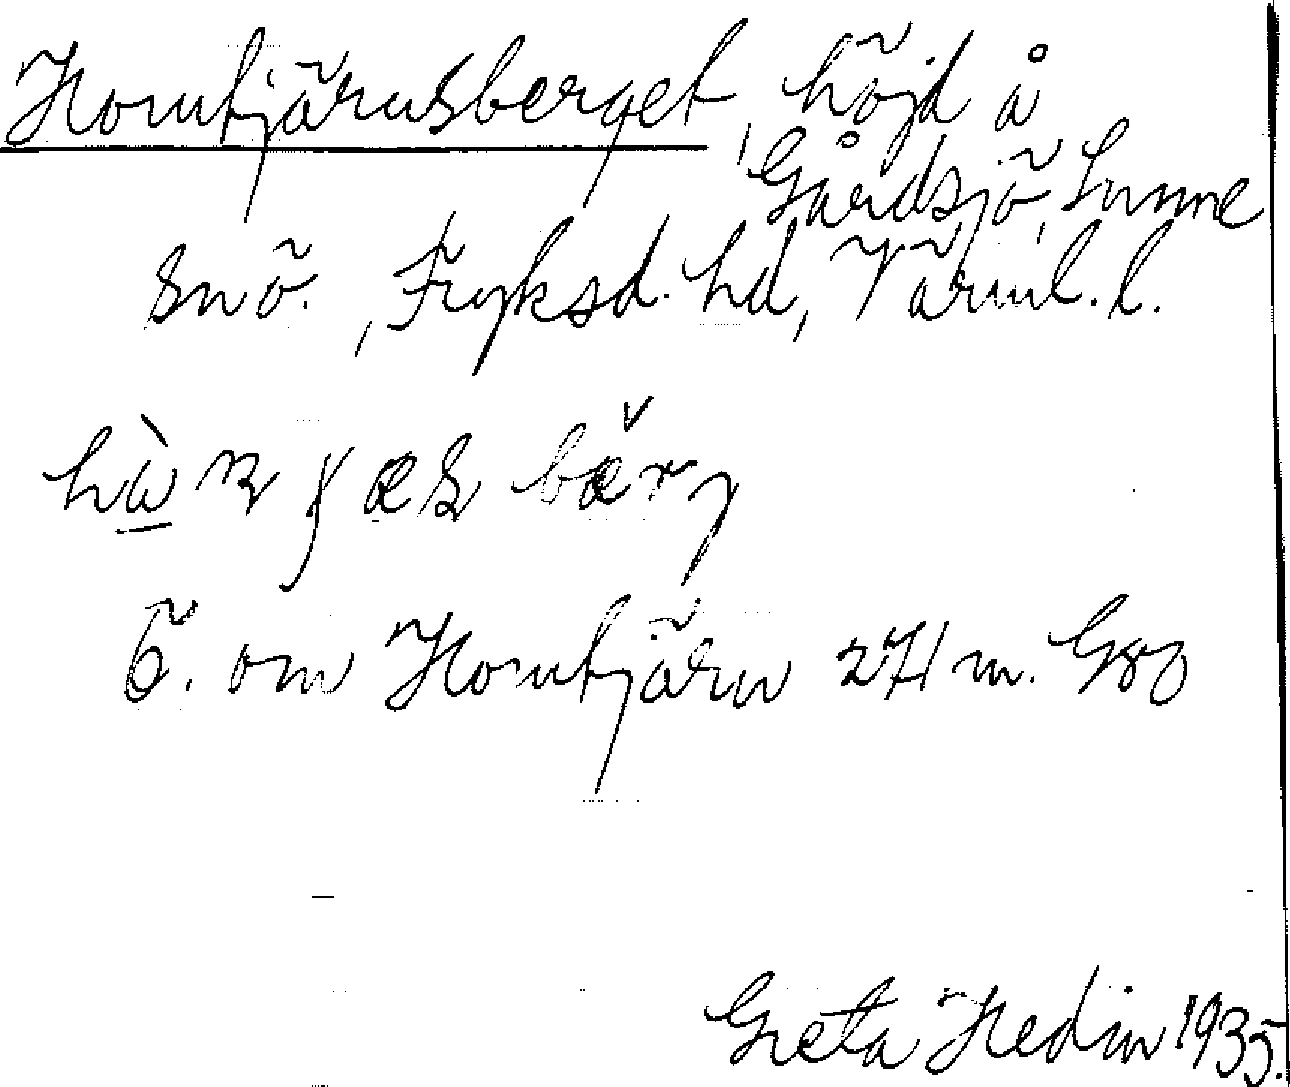 Horntjärnsberget, höjd å
Gårdsjö, Sunne
snö., Fryksd. hd, Värml. l.
Ö. om Horntjärn 271 m. Gso
Greta Hedin 1935.